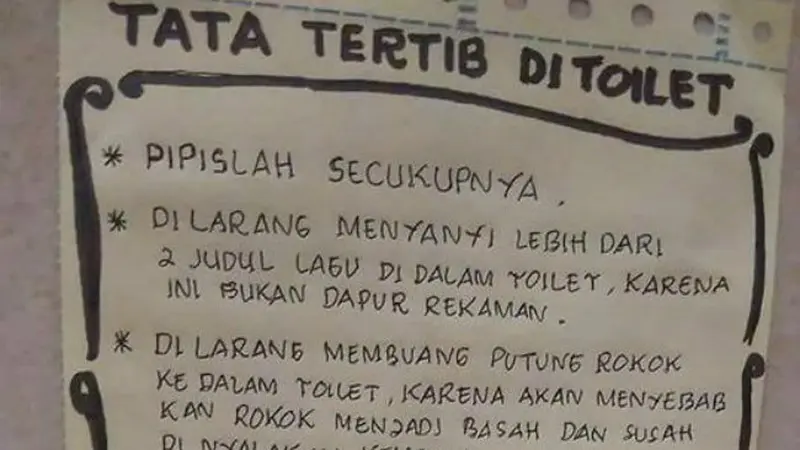 TATA TERTIB DI TOILET
* PIPISLAH SECUKUPNYA.
* DI LARANG MENYANYI LEBIH DARI
2 JUDUL LAGU DI DALAM TOILET, KARENA
INI BUKAN DAPUR REKAMAN.
* DI LARANG MEMBUANG PUTUNG ROKOK
KE DALAM TOILET, KARENA AKAN MENYEBAB
KAN ROKOK MENJADI BASAH DAN SUSAH